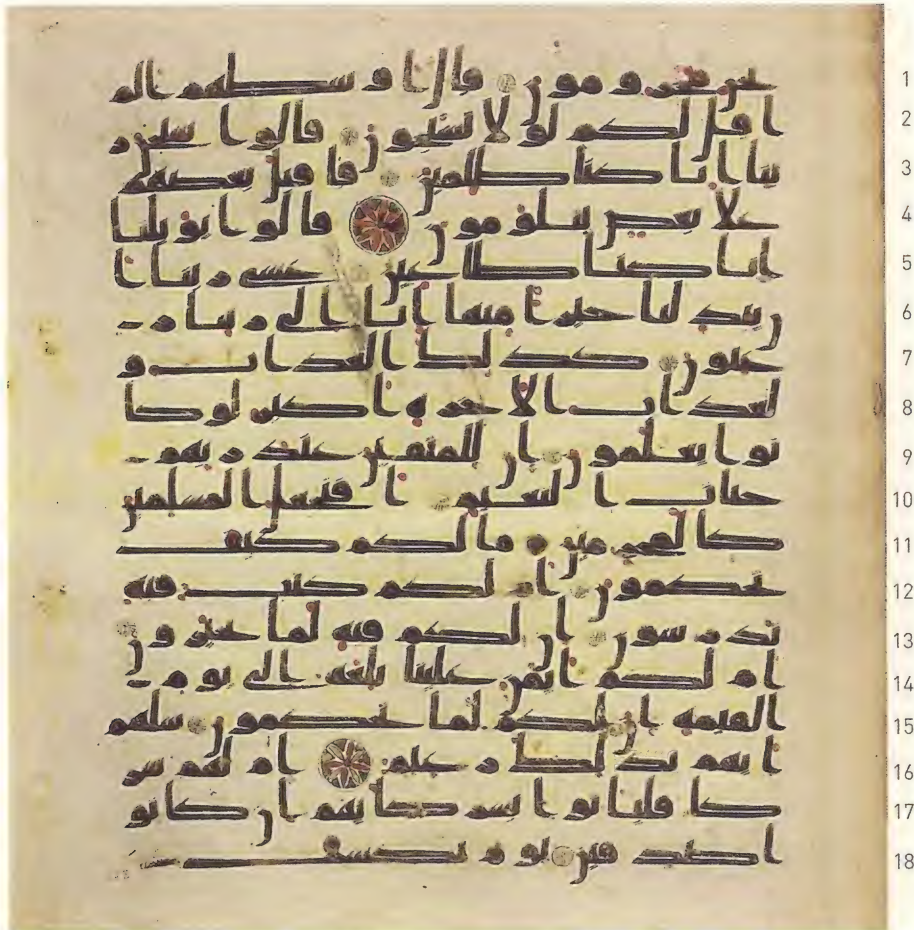 1 نحن محرومون قال اوسطهم الم
2 اقل لكم لولا تسبحون قالوا سبحن ر
3 بنا انا كنا ظلمين فاقبل بعضهم
4 على بعض يتلومون قالوا يويلنا
5 انا كنا طغين عسى ربنا ا
6 ن يبدلنا خيرا منها انا الى ربنا ر
7 غبون كذلك العذاب و
8 لعذاب الاخرة اكبر لو كا
9 نوا يعلمون ان للمتقين عند ربهم
10 جنات النعيم افنجعل المسلمين
11 كالمجرمين ما لكم كيف
12 تحكمون ام لكم كتب فيه
13 تدرسون ان لكم فيه لما تخيرون
14 ام لكم ايمن علينا بلغة الى يوم
15 القيمة ان لكم لما تحكمون سلهم
16 ايهم بذلك زعيم ام لهم شر
17 كا فلياتوا بشركايهم ان كانو
18 ا صدقين يوم يكشف